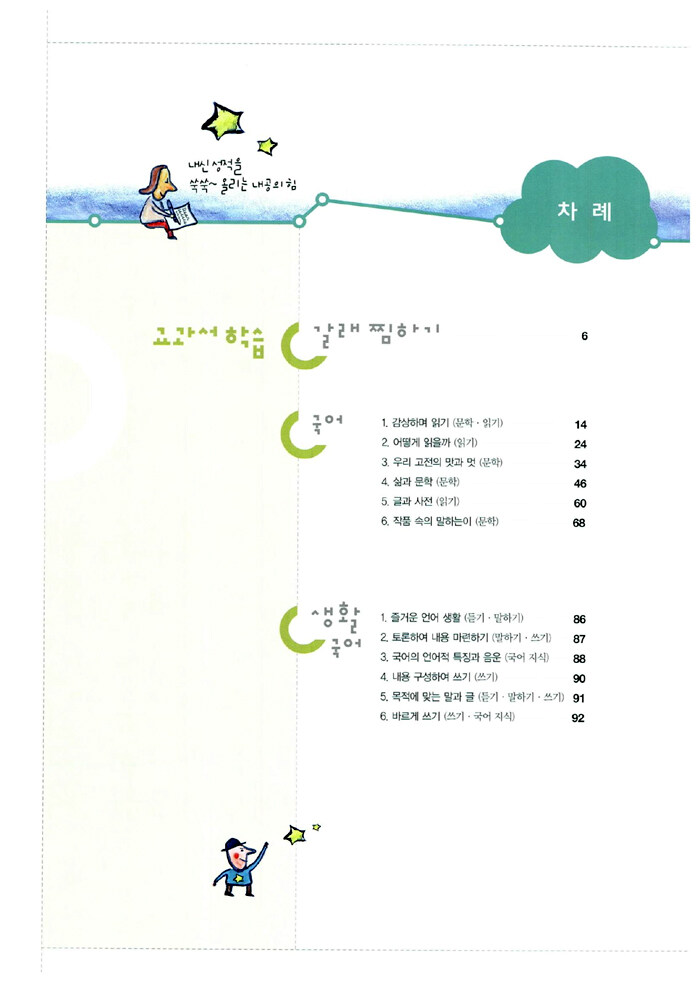 내신 성적을
쑥쑥~ 올리는 내공의 힘
차 례
교과서 학습
갈래 찜하기 6
국어
1. 감상하며 읽기 (문학 · 읽기) 14
2. 어떻게 읽을까 (읽기) 24
3. 우리 고전의 맛과 멋 (문학) 34
4. 삶과 문학 (문학) 46
5. 글과 사전 (읽기) 60
6. 작품 속의 말하는이 (문학) 68
생활
국어
1. 즐거운 언어 생활 (듣기 · 말하기) 86
2. 토론하여 내용 마련하기 (말하기 · 쓰기) 87
3. 국어의 언어적 특징과 음운 (국어 지식) 88
4. 내용 구성하여 쓰기 (쓰기) 90
5. 목적에 맞는 말과 글 (듣기 · 말하기 · 쓰기) 91
6. 바르게 쓰기 (쓰기 · 국어 지식) 92